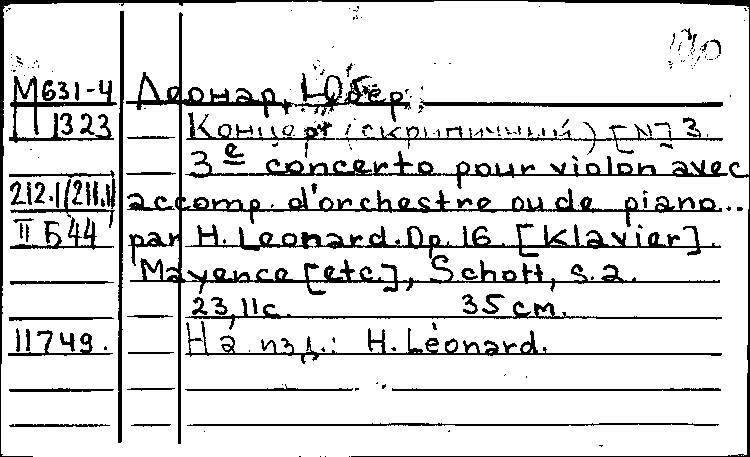 М631-4 Леонар, Юбер.
П 1323 Концерт (скрипичный) [№] 3.
3е concerto pour violon avec
212.1(211.1) accomp. d'orchestre ou de piano...
II Б44 par H. Leonard. Op. 16. [Klavier].
Mayence [etc.], Schott, s.a.
23, 11 с. 35 см.
11749. На изд.: H. Léonard.